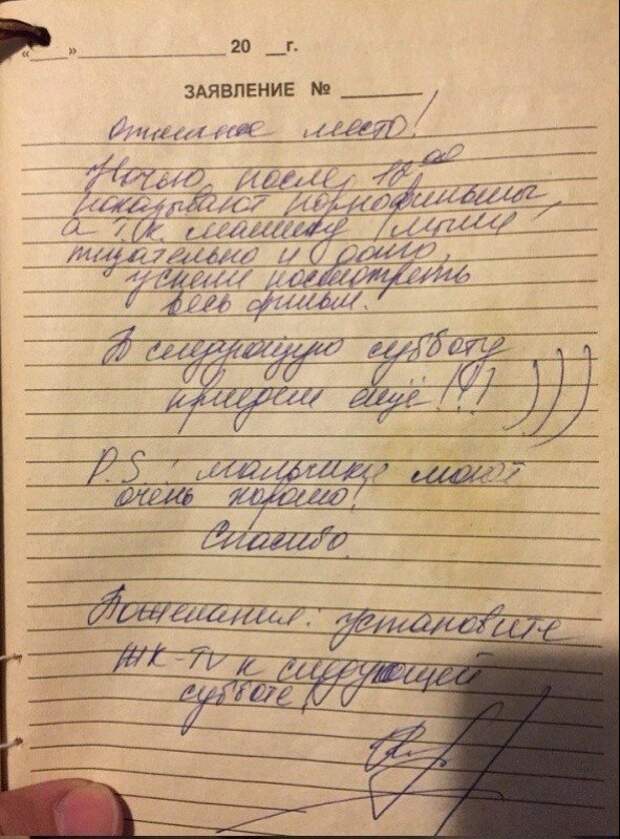 «___»______________ 20 __г.
ЗАЯВЛЕНИЕ № ________
отличное место!
Ночью после 12 00
показывают порнофильмы,
а т.к. машину мыли
тщательно и долго,
успели посмотреть
весь фильм.
В следующую субботу
приедем ещё!!! )))
P.S: мальчики моют
очень хорошо!
Спасибо.
Пожелания: установите
ЖК-TV к следующей
субботе!